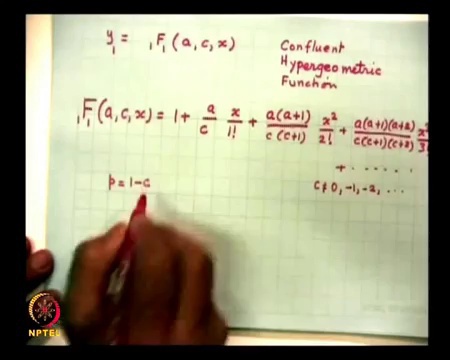 y₁ = ₁F₁ (a, c, x)
Confluent
Hypergeometric
Function
₁F₁ (a, c, x) = 1 + a/c x/1! + a(a+1)/c(c+1) x²/2! + a(a+1)(a+2)/c(c+1)(c+2) x³/3!
+ ......
c ≠ 0, -1, -2, ...
p = 1-c
NPTEL